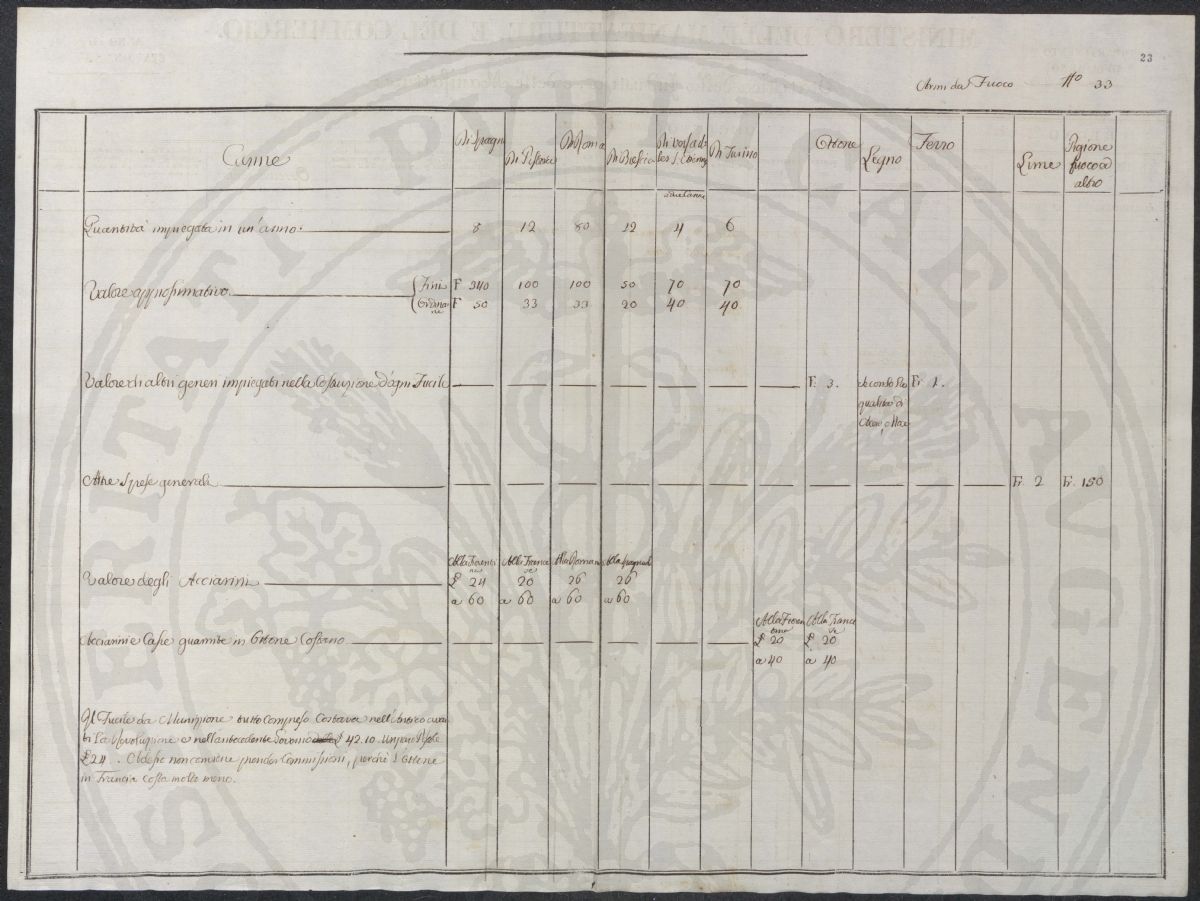 23
Armi da Fuoco Nº 33
Canne
Di Spagna
Di Pistoia
Di Roma
Di Brescia
Di Torino
Ottone
Legno
Ferro
Lime
Pigione
fuoco ed
altro
Quantità impiegata in un' anno. 8 12 80 12 4 6
Valore approssimativo Fini F 340 100 100 50 70 70
Ordinarie F 50 33 33 20 40 40
Valore di altri generi impiegati nella Costruzione d'ogni Fucile F. 3. secondo la Fr 1.
qualità di
Altre Spese generali Fr. 2 Fr. 150
Alla Fiorentina Alla Francese Alla Romana Alla Spagnuola
Valore degli Acciarini £ 24 20 26 26
a 60 a 60 a 60 a 60
Alla Fiorentina Alla Francese
Acciarini e Casse guarnite in Ottone Costano £ 20 £ 20
a 40 a 40
Il Fucile da Munizione tutto Compreso Costava nell'
la Rivoluzione e nell'antecedente Governo £ 42.10. Un paio Pistole
£ 24. Adesso non conviene prender Commissioni, perchè l'Ottone
in Francia costa molto meno.